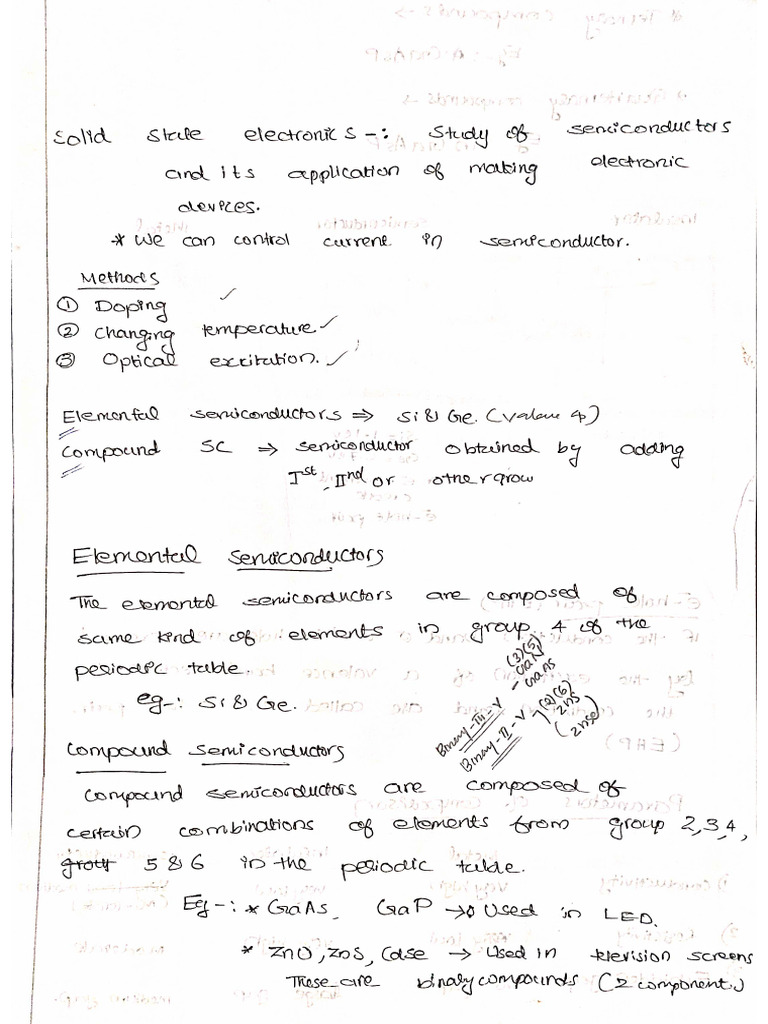 Solid State electronics -: Study of semiconductors
and its application of making electronic
devices.
* We can control current in semiconductor.
Methods
① Doping ✓
② Changing temperature ✓
③ Optical excitation. ✓
Elemental semiconductors ⇒ Si & Ge. (Valance 4)
Compound SC ⇒ semiconductor obtained by adding
Ist, IInd or other grow
Elemental Semiconductors
The elemental semiconductors are composed of
same kind of elements in group 4 of the
periodic table.
eg-: Si & Ge.
Binary-III-V - (3)(5) GaN GaAs
Binary-II-V (2)(6) ZnS (ZnSe)
Compound Semiconductors
Compound semiconductors are composed of
certain combinations of elements from group 2,3,4,
5 & 6 in the periodic table.
Eg-: * GaAs, GaP → Used in LED.
* ZnO, ZnS, Case → Used in television screens
These are binaly compounds (2 component.)